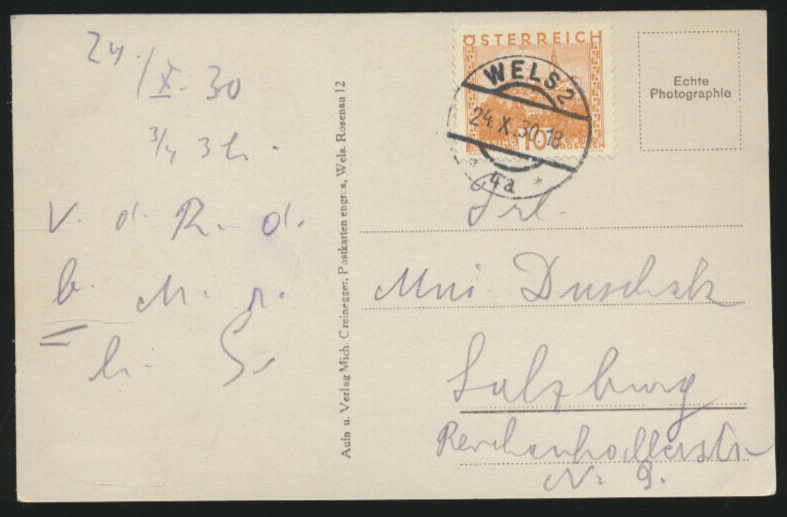 24./X. 30
3/4 3 h.
V. d. R. d.
b. M. r.
h. Gr
Aufn u. Verlag Mich Creinegger, Postkarten engros, Wels. Rosenau 12
ÖSTERREICH
WELS 2
24.X.30.18
4a *
10 GROSCHEN
Echte
Photographie
Frl.
Duschek
Salzburg
Reichenhallerstr
Nr 9.